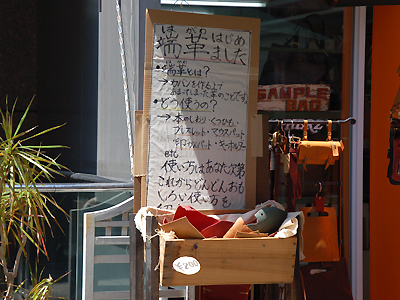 端革はじめ
ました
・端革とは?
→カバンを作る上で
あまってしまった革のことです。
・どう使うの?
→本のしおり・くつひも・
ブレスレット・マウスパット
etc
使い方はあなた次第
これからどんどんおも
しろい使い方を
SAMPLE
BAG
¥200